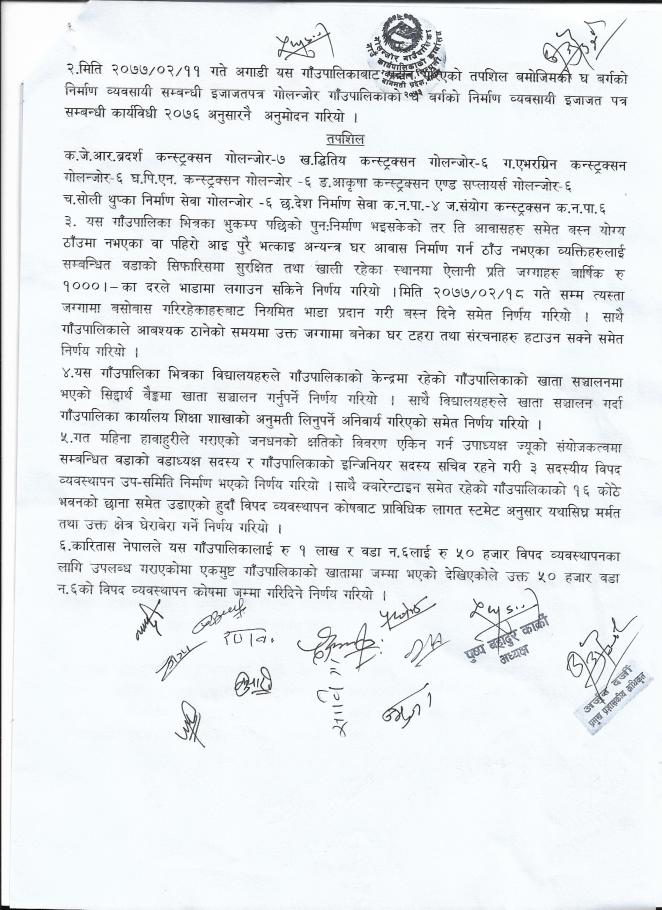 २.मिति २०७७/०२/११ गते अगाडी यस गाँउपालिकाबाट तपशिल बमोजिमको घ बर्गको
निर्माण व्यवसायी सम्बन्धी इजाजतपत्र गोलन्जोर गाँउपालिकाको घ बर्गको निर्माण व्यवसायी इजाजत पत्र
सम्बन्धी कार्यविधी २०७६ अनुसारनै अनुमोदन गरियो ।
तपशिल
क.जे.आर.ब्रदर्श कन्स्ट्रक्सन गोलन्जोर-७ ख.द्धितिय कन्स्ट्रक्सन गोलन्जोर-६ ग.एभरग्रिन कन्स्ट्रक्सन
गोलन्जोर-६ घ.पि.एन. कन्स्ट्रक्सन गोलन्जोर -६ ड.आकृषा कन्स्ट्रक्सन एण्ड सप्लायर्स गोलन्जोर-६
च.सोली थुप्का निर्माण सेवा गोलन्जोर -६ छ.देश निर्माण सेवा क.न.पा.-४ ज.संयोग कन्स्ट्रक्सन क.न.पा.६
३. यस गाँउपालिका भित्रका भुकम्प पछिको पुन:निर्माण भइसकेको तर ति आवासहरु समेत बस्न योग्य
ठाँउमा नभएका वा पहिरो आइ पुरै भत्काइ अन्यन्त्र घर आवास निर्माण गर्न ठाँउ नभएका व्यक्तिहरुलाई
सम्बन्धित वडाको सिफारिसमा सुरक्षित तथा खाली रहेका स्थानमा ऐलानी प्रति जग्गाहरु बार्षिक रु
१०००।–का दरले भाडामा लगाउन सकिने निर्णय गरियो ।मिति २०७७/०२/१८ गते सम्म त्यस्ता
जग्गामा बसोबास गरिरहेकाहरुबाट नियमित भाडा प्रदान गरी बस्न दिने समेत निर्णय गरियो । साथै
गाँउपालिकाले आबश्यक ठानेको समयमा उक्त जग्गामा बनेका घर टहरा तथा संरचनाहरु हटाउन सक्ने समेत
निर्णय गरियो ।
४.यस गाँउपालिका भित्रका विद्यालयहरुले गाँउपालिकाको केन्द्रमा रहेको गाँउपालिकाको खाता सञ्चालनमा
भएको सिद्वार्थ बैङ्कमा खाता सञ्चालन गर्नुपर्ने निर्णय गरियो । साथै विद्यालयहरुले खाता सञ्चालन गर्दा
गाँउपालिका कार्यालय शिक्षा शाखाको अनुमती लिनुपर्ने अनिवार्य गरिएको समेत निर्णय गरियो ।
५.गत महिना हावाहुरीले गराएको जनधनको क्षतिको विवरण एकिन गर्न उपाध्यक्ष ज्यूको संयोजकत्वमा
सम्बन्धित वडाको वडाध्यक्ष सदस्य र गाँउपालिकाको इन्जिनियर सदस्य सचिव रहने गरी ३ सदस्यीय विपद
व्यवस्थापन उप-समिति निर्माण भएको निर्णय गरियो ।साथै क्वारेन्टाइन समेत रहेको गाँउपालिकाको १६ कोठे
भवनको छाना समेत उडाएको हुदाँ विपद व्यवस्थापन कोषबाट प्राविधिक लागत स्टमेट अनुसार यथासिघ्र मर्मत
तथा उक्त क्षेत्र घेराबेरा गर्ने निर्णय गरियो ।
६.कारितास नेपालले यस गाँउपालिकालाई रु १ लाख र वडा न.६लाई रु ५० हजार विपद व्यवस्थापनका
लागि उपलब्ध गराएकोमा एकमुष्ट गाँउपालिकाको खातामा जम्मा भएको देखिएकोले उक्त ५० हजार वडा
न.६को विपद व्यवस्थापन कोषमा जम्मा गरिदिने निर्णय गरियो ।
पुष्प बहादुर कार्की
अध्यक्ष
प्रमुख प्रशासकीय अधिकृत